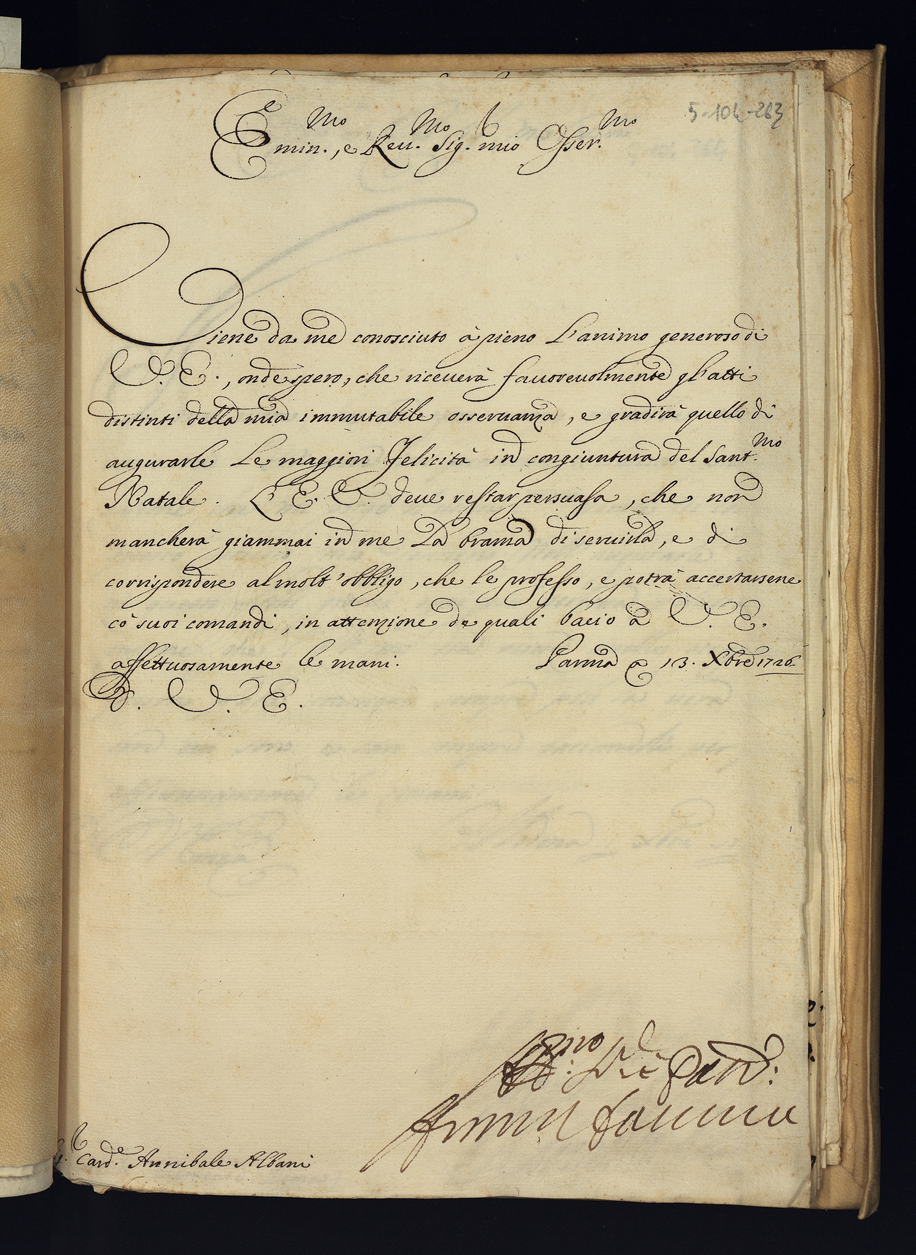 5-104-263
Emin.mo, e Reu.mo Sig.r mio Osser.mo
Viene da me conosciuto à pieno l'animo generoso di
V. E., onde spero, che riceuerà fauoreuolmente gl'atti
distinti della mia immutabile osseruanza, e gradirà quello di
augurarle le maggiori felicità in congiuntura del Sant.mo
Natale. L'E. V. deue restar persuasa, che non
mancherà giammai in me la brama di seruirla, e di
corrispondere al molt'obbligo, che le professo, e potrà accertarsene
cò suoi comandi, in attenzione de quali bacio à V. E.
affettuosamente le mani. Parma p 13. Xbre 1726
D. V. E.
Aff.mo
Card.e Annibale Albani